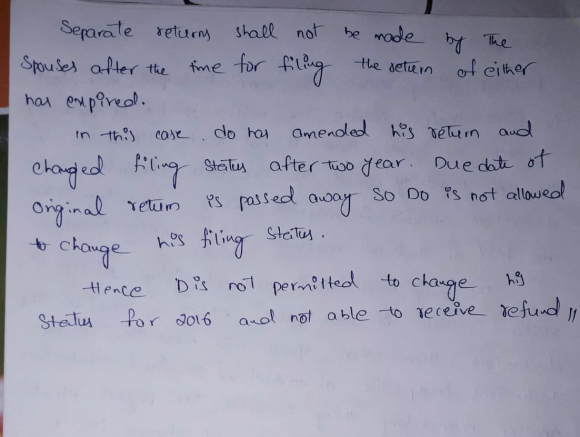 Separate returns shall not be made by The
Spouses after the time for filing the return of either
has expired.
in this case. do has amended his return and
changed filing status after two year. Due date of
original return is passed away So Do is not allowed
to change his filing Status.
Hence D is not permitted to change his
Status for 2016 and not able to receive refund //